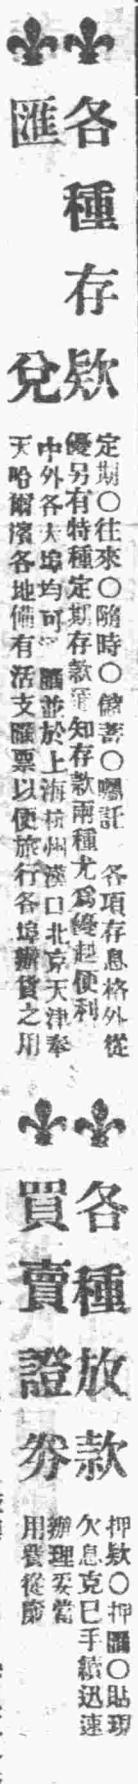 各種存欵
匯兌
定期〇往來〇隨時〇儲蓄〇囑託 各項存息格外從
優另有特種定期存款通知存款兩種尤爲優越便利
中外各大埠均可 匯並於上海杭州漢口北京天津奉
天哈爾濱各地備有活支匯票以便旅行各埠辦貨之用
各種放款
買賣證券
押欵〇押匯〇貼現
欠息克己手續迅速
辦理妥當
用費從廉